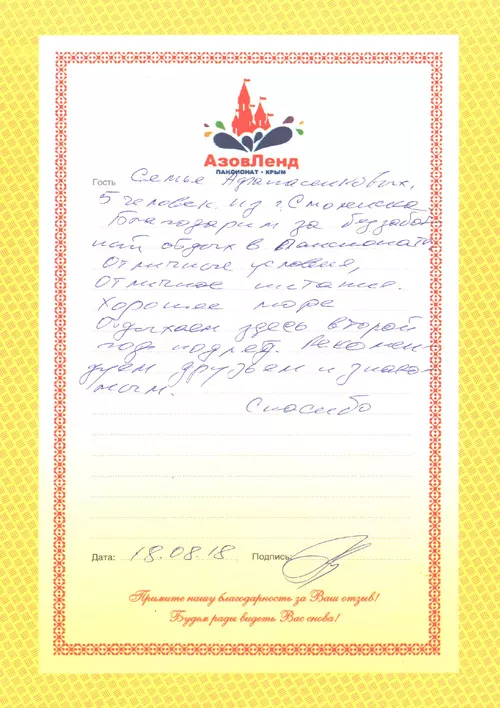 АзовЛенд
ПАНСИОНАТ • КРЫМ
Гость Семья Афанасенковых,
5 человек из г. Смоленска
Благодарим за беззабот
ный отдых в Пансионате
Отличные условия,
Отличное питание.
Хорошее море
Отдыхаем здесь второй
год подряд. Рекомен
дуем друзьям и знако
мым.
Спасибо
Дата: 18.08.18 Подпись:
Примите нашу благодарность за Ваш отзыв!
Будем рады видеть Вас снова!